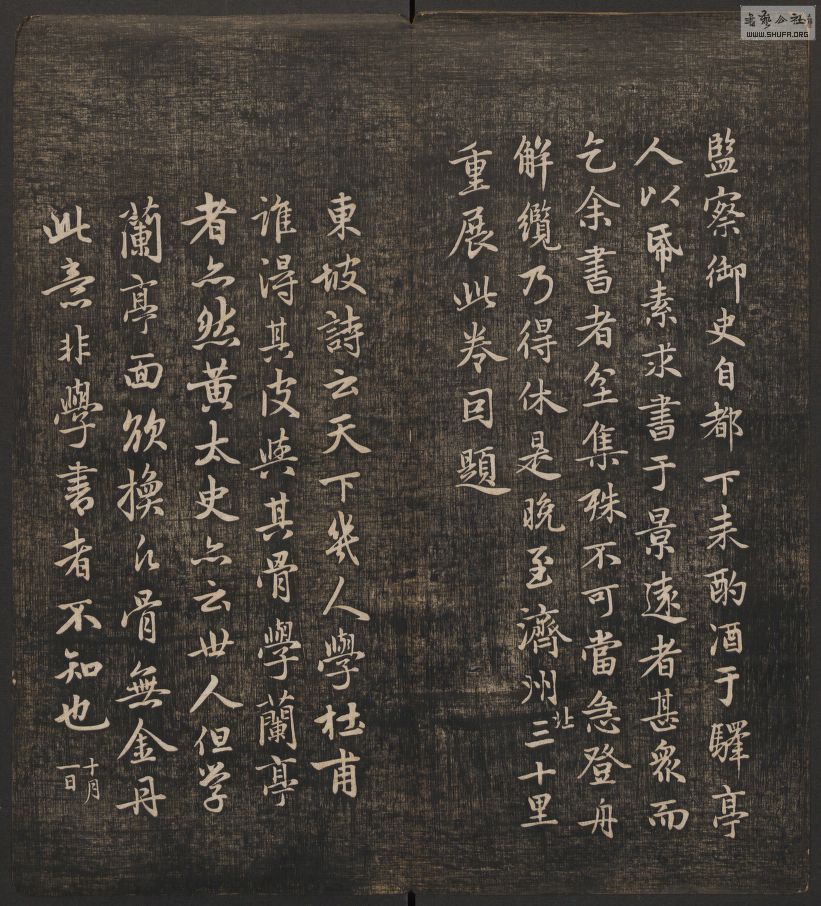 監察御史自都下来酌酒于驛亭
人以帋素求書于景遠者甚衆而
乞余書者坌集殊不可當急登舟
解纜乃得休是晚至濟州北三十里
重展此卷因題
東坡詩云天下幾人學杜甫
誰得其皮與其骨學蘭亭
者亦然黄太史亦云世人但学
蘭亭面欲換凡骨無金丹
此意非學書者不知也十月一日
書藝公社
WWW.SHUFA.ORG